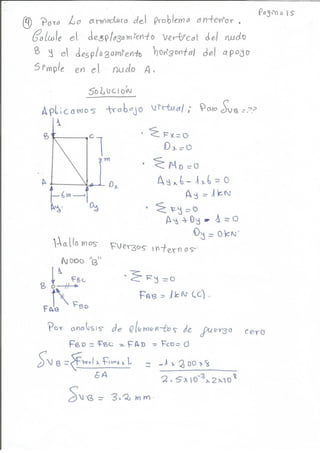 Página 15
④ Para La armadura del problema anterior.
Calcule el desplazamiento vertical del nudo
B y el desplazamiento horizontal del apoyo
Simple en el nudo A.
SOLUCION
Aplicamos trabajo virtual; Para SvB =??
1
B
C
m
A
Dx
6m
Ay
Dy
∑Fx=0
Dx=0
∑MD=0
Ay×6-1×6=0
Ay = 1KN
∑Fy=0
Ay+Dy-1=0
Dy=0KN
Hallamos Fuerzas internas
NODO "B"
1
B
FBC
FAB
FBD
∑Fy=0
FAB = 1KN (C).
Por analisis de elementos de fuerza cero
FBD = FBC = FAD = FCD = 0
= -1×200×8
EA
2.5×10⁻³×2×10⁸
SvB = 3.2 mm.